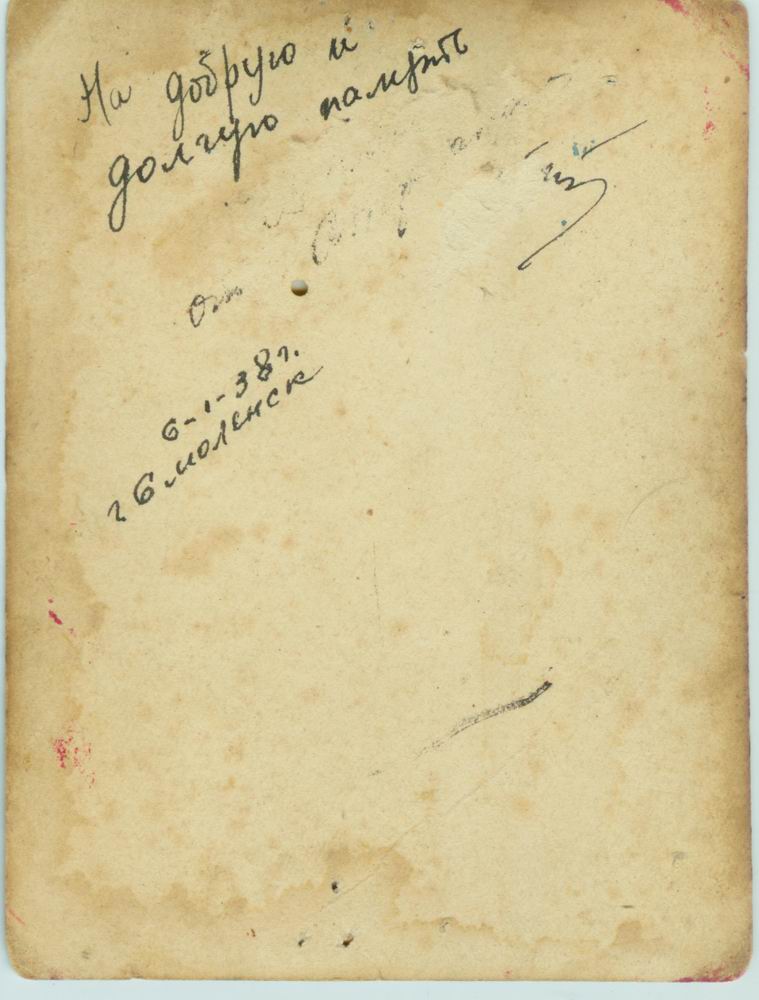 На добрую и
долгую память
от
6-1-38 г.
г Смоленск